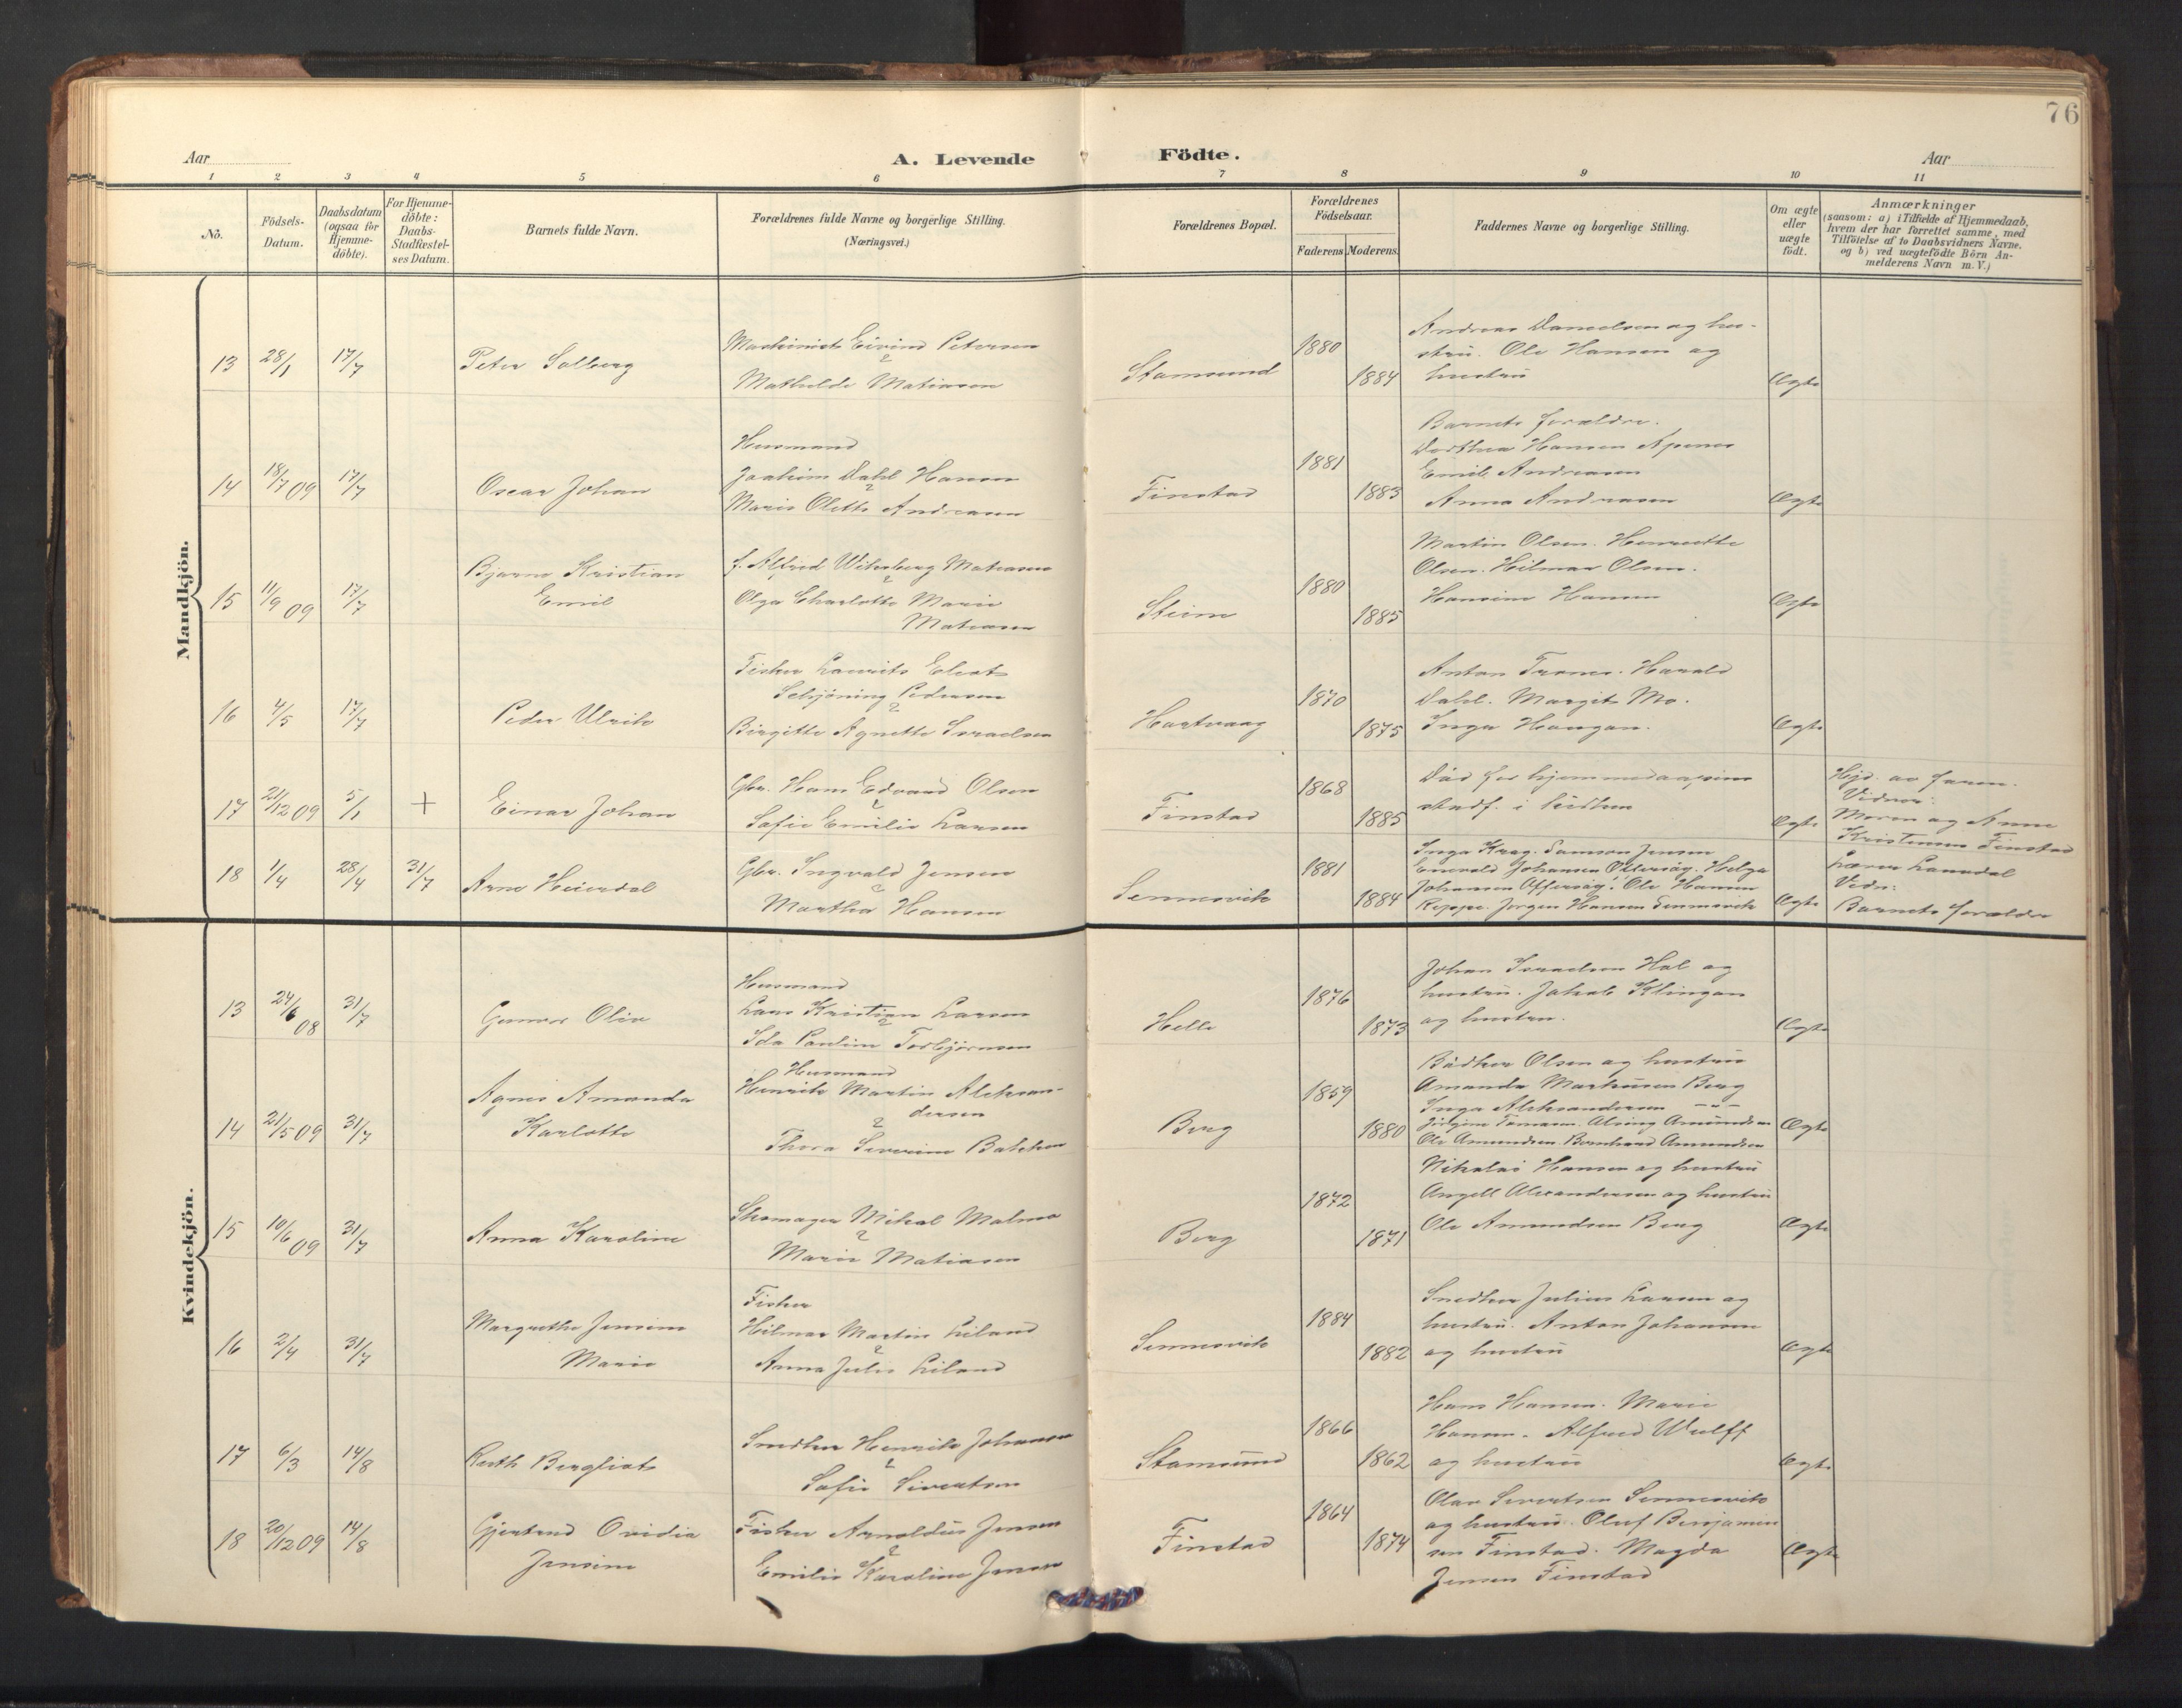 76
Aar
A. Levende
Födte.
Aar
1 2 3 4 5 6 7 8 9 10 11
No.
Födsels-
Datum.
Daabsdatum
(ogsaa for
Hjemme-
döbte).
For Hjemme-
döbte:
Daabs-
Stadfæstel-
ses Datum.
Barnets fulde Navn.
Forældrenes fulde Navne og borgerlige Stilling.
(Næringsvei.)
Forældrenes Bopæl.
Forældrenes
Födselsaar.
Faderens Moderens.
Faddernes Navne og borgerlige Stilling.
Om ægte
eller
uægte
födt.
Anmærkninger
(saasom: a) i Tilfælde af Hjemmedaab,
hvem der har forrettet samme, med
Tilföielse af to Daabsvidners Navne,
og b) ved uægtefödte Börn An-
melderens Navn m. V.)
Mandkjön.
13 28/1 17/7
Peter Solberg
Maskinist Eivind Petersen
&
Mathilde Matiasen
Stamsund
1880
1884
Andreas Danielsen og hu-
stru. Ole Hansen og
hustru
Ægte
14 18/7 09 17/7
Oscar Johan
Husmand
Joakim Dahl Hansen
&
Marie Olette Andreasen
Finstad
1881
1883
Barnets forældre.
Dorthea Hansen Apenes
Emil Andreasen
Anna Andreasen
Ægte
15 11/9 09 17/7
Bjarne Kristian
Emil
f. Alfred Wiksberg Matiasen
&
Olga Charlotte Marie
Matiasen
Steine
1880
1885
Martin Olsen. Henriette
Olsen. Hilmar Olsen.
Hansine Hansen
Ægte
16 4/5 17/7
Peder Ulrik
Fisker Laurits Eliot
Schjöning Pedersen
&
Birgitte Agnette Israelsen
Hartvaag
1870
1875
Anton Tranes. Harald
Dahl. Margit Mo.
Inga Haugan.
Ægte
17 21/12 09 5/1 +
Einar Johan
Gbr. Hans Edvard Olsen
&
Sofie Emilie Larsen
Finstad
1868
1885
Död før hjemmedaapens
stadf. i kirken
Ægte
Hjd. av faren.
Vidner:
Moren og Anne
Kristensen Finstad
18 1/4 28/4 31/7
Arne Heierdal
Gbr. Ingvald Jensen
&
Martha Hansen
Sennesvik
1881
1884
Inga Krag. Samson Jensen
Enevold Johansen Offersøy. Helga
Johansen Offersøy. Ole Hansen
Reppe. Jørgen Hansen Sennesvik
Ægte
Lærer Lanedal
Vidn:
Barnets forældre
Kvindekjön.
13 24/6 08 31/7
Gunvor Olie
Husmand
Lars Kristian Larsen
&
Ida Pauline Torbjørnsen
Helle
1876
1873
Johan Israelsen Hol og
hustru. Jakob Klingan
og hustru.
Ægte
14 21/5 09 31/7
Agnes Amanda
Karlotte
Husmand
Henrik Martin Aleksan-
dersen
&
Thora Severine Bakken
Berg
1859
1880
Bödker Olsen og hustru
Amanda Markussen Berg
Inga Aleksandersen — " —
Jörgine Tomasen. Alving Amundsen
Ole Amundsen. Bernhard Amundsen
Ægte
15 10/6 09 31/7
Anna Karoline
Skomager Mikal Malmo
&
Marie Matiasen
Berg
1872
1871
Nikolai Hansen og hustru
Angell Alexandersen og hustru
Ole Amundsen Berg
Ægte
16 2/4 31/7
Margrethe Jensine
Marie
Fisker
Hilmar Martin Liland
&
Anna Julie Liland
Sennesvik
1884
1882
Snedker Julius Larsen og
hustru. Anton Johansen
og hustru
Ægte
17 6/3 14/8
Ruth Bergliot
Snedker Henrik Johansen
&
Sofie Sivertsen
Stamsund
1866
1862
Hans Hansen. Marie
Hansen. Alfred Wulff
og hustru
Ægte
18 20/12 09 14/8
Gjertrud Ovidia
Jensine
Fisker Arnoldus Jensen
&
Emilie Karoline Jensen
Finstad
1864
1874
Olav Sivertsen Sennesvik
og hustru. Oluf Benjamin
sen Finstad. Magda
Jensen Finstad
Ægte